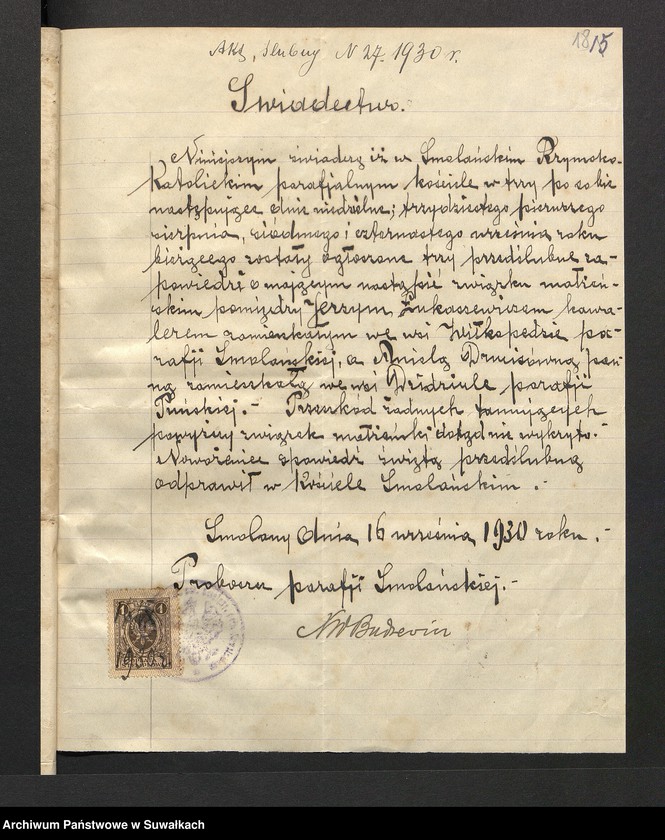 Akt, ślubny N 27. 1930 r.
18 15
Świadectwo.
Niniejszym świadczę iż w Smolańskim Rzymsko-
Katolickim parafjalnym kościele w trzy po sobie
następujące dnie niedzielne; trzydziestego pierwszego
sierpnia, siódmego i czternastego września roku
bieżącego zostały ogłoszone trzy przedślubne za-
powiedzi o mającym nastąpić związku małżeń-
skim pomiędzy Jerzym Łukaszewiczem kawa-
lerem zamieszkałym we wsi Wiłkopedzie pa-
rafji Smolańskiej, a Anielą Drucisówną pan-
ną zamieszkałą we wsi Dzidziule parafji
Puńskiej.- Przeszkód żadnych tamujących
powyższy związek małżeński dotąd nie wykryto.-
Nowożeniec spowiedź świętą przedślubną
odprawił w Kościele Smolańskim.-
Smolany dnia 16 września 1930 roku.-
Proboszcz parafji Smolańskiej.-
1 1
Archiwum Państwowe w Suwałkach